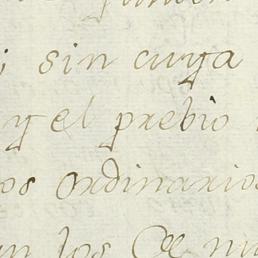 ; sin cuya
y el prebio
os ordinarios
an los Ce nu